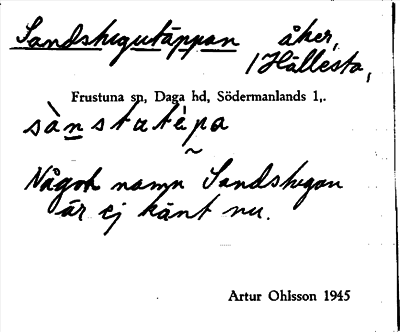 Sandstugutäppan åker,
/ Hällesta,
Frustuna sn, Daga hd, Södermanlands l,.
sànstatépa
~
Något namn Sandstugan
är ej känt nu.
Artur Ohlsson 1945